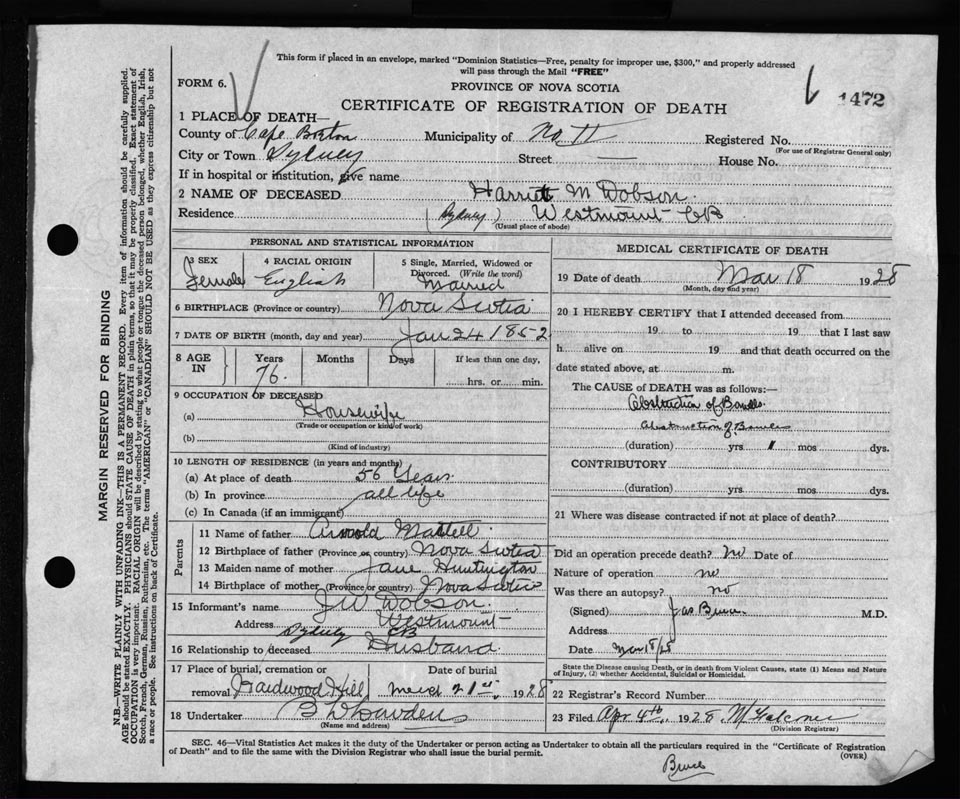 This form if placed in an envelope, marked "Dominion Statistics—Free, penalty for improper use, $300," and properly addressed
will pass through the Mail "FREE"
FORM 6.
PROVINCE OF NOVA SCOTIA
1472
CERTIFICATE OF REGISTRATION OF DEATH
1 PLACE OF DEATH—
County of Cape Breton Municipality of No 11 Registered No.
(For use of Registrar General only)
City or Town Sydney Street — House No.
If in hospital or institution, give name
2 NAME OF DECEASED Harriett M Dobson
Residence (Sydney) Westmount CB
(Usual place of abode)
PERSONAL AND STATISTICAL INFORMATION
3 SEX 4 RACIAL ORIGIN 5 Single, Married, Widowed or
Divorced. (Write the word)
Female English Married
6 BIRTHPLACE (Province or country) Nova Scotia
7 DATE OF BIRTH (month, day and year) Jan 24 1852
8 AGE IN Years Months Days If less than one day,
76. hrs. or min.
9 OCCUPATION OF DECEASED
(a) Housewife
(Trade or occupation or kind of work)
(b)
(Kind of industry)
10 LENGTH OF RESIDENCE (in years and months)
(a) At place of death 56 Years
(b) In province all life
(c) In Canada (if an immigrant)
Parents
11 Name of father Arnold Martell
12 Birthplace of father (Province or country) Nova Scotia
13 Maiden name of mother Jane Huntington
14 Birthplace of mother (Province or country) Nova Scotia
15 Informant's name J W Dobson
Address Westmount
Sydney CB
16 Relationship to deceased Husband
17 Place of burial, cremation or Date of burial
removal Hardwood Hill March 21st, 1928
18 Undertaker
(Name and address)
MEDICAL CERTIFICATE OF DEATH
19 Date of death Mar 18 1928
(Month, day and year)
20 I HEREBY CERTIFY that I attended deceased from
19 to 19 that I last saw
h alive on 19 and that death occurred on the
date stated above, at m.
The CAUSE of DEATH was as follows:—
Obstruction of Bowels
Obstruction of Bowels
(duration) yrs 1 mos dys.
CONTRIBUTORY
(duration) yrs mos dys.
21 Where was disease contracted if not at place of death?
Did an operation precede death? no Date of
Nature of operation no
Was there an autopsy? no
(Signed) Jas Bruce M.D.
Address
Date Mar 18/28
State the Disease causing Death, or in death from Violent Causes, state (1) Means and Nature
of Injury, and (2) whether Accidental, Suicidal or Homicidal.
22 Registrar's Record Number
23 Filed Apr 4th, 1928. M Falconer
(Division Registrar)
SEC. 46—Vital Statistics Act makes it the duty of the Undertaker or person acting as Undertaker to obtain all the particulars required in the "Certificate of Registration
of Death" and to file the same with the Division Registrar who shall issue the burial permit. (OVER)
Bruce
MARGIN RESERVED FOR BINDING
N.B.—WRITE PLAINLY WITH UNFADING INK—THIS IS A PERMANENT RECORD. Every item of information should be carefully supplied.
AGE should be stated EXACTLY. PHYSICIANS should STATE CAUSE OF DEATH in plain terms, so that it may be properly classified. Exact statement of
OCCUPATION is very important. RACIAL ORIGIN will be described by stating to what people or tongue the deceased person belonged, whether English, Irish,
Scotch, French, German, Russian, Ruthenian, etc. The terms "AMERICAN" or "CANADIAN" SHOULD NOT BE USED as they express citizenship but not
a race or people. See instructions on back of Certificate.